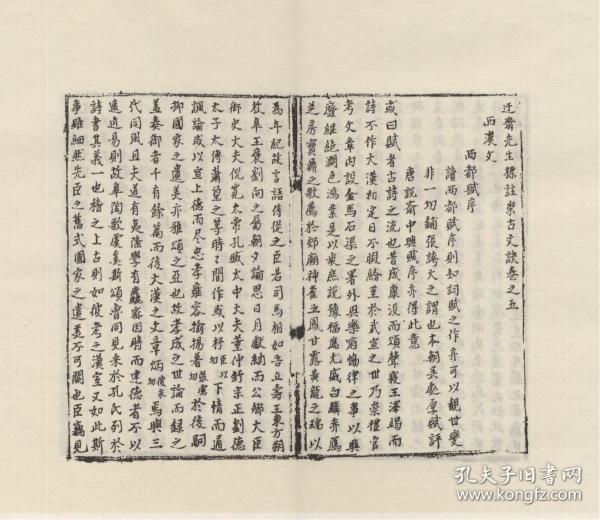 迂齋先生標註崇古文訣卷之五
西漢文
西都賦序
讀西都賦序則知詞賦之作亦可以觀世變
非一切鋪張誇大之謂也本朝吳處厚賦評
唐説齋中興賦序亦得此意
或曰賦者古詩之流也昔成康沒而頌聲寢王澤竭而
詩不作大漢初定日不暇給至於武宣之世乃崇禮官
考文章内設金馬石渠之署外興樂府協律之事以興
廢繼絶潤色鴻業是以衆庶説豫福應尤盛白麟赤鴈
芝房寶鼎之歌薦於郊廟神雀五鳳甘露黄龍之瑞以
為年紀故言語侍從之臣若司馬相如吾丘壽王東方朔
枚皋王褒劉向之屬朝夕論思日月獻納而公卿大臣
御史大夫倪寛太常孔臧太中大夫董仲舒宗正劉德
太子太傅蕭望之等時時間作或以抒下情而通
諷諭或以宣上德而盡忠孝雍容揄揚著於後嗣
抑國家之遺美亦雅頌之亞也故孝成之世論而録之
蓋奏御者千有餘篇而後大漢之文章炳焉與三
代同風且夫道有夷隆學有麤密因時而建德者不以
遠近易則故皋陶歌虞奚斯頌魯同見采於孔氏列於
詩書其義一也稽之上古則如彼考之漢室又如此斯
事雖細然先臣之舊式國家之遺美不可闕也臣竊見
孔夫子旧书网
www.kongfz.com